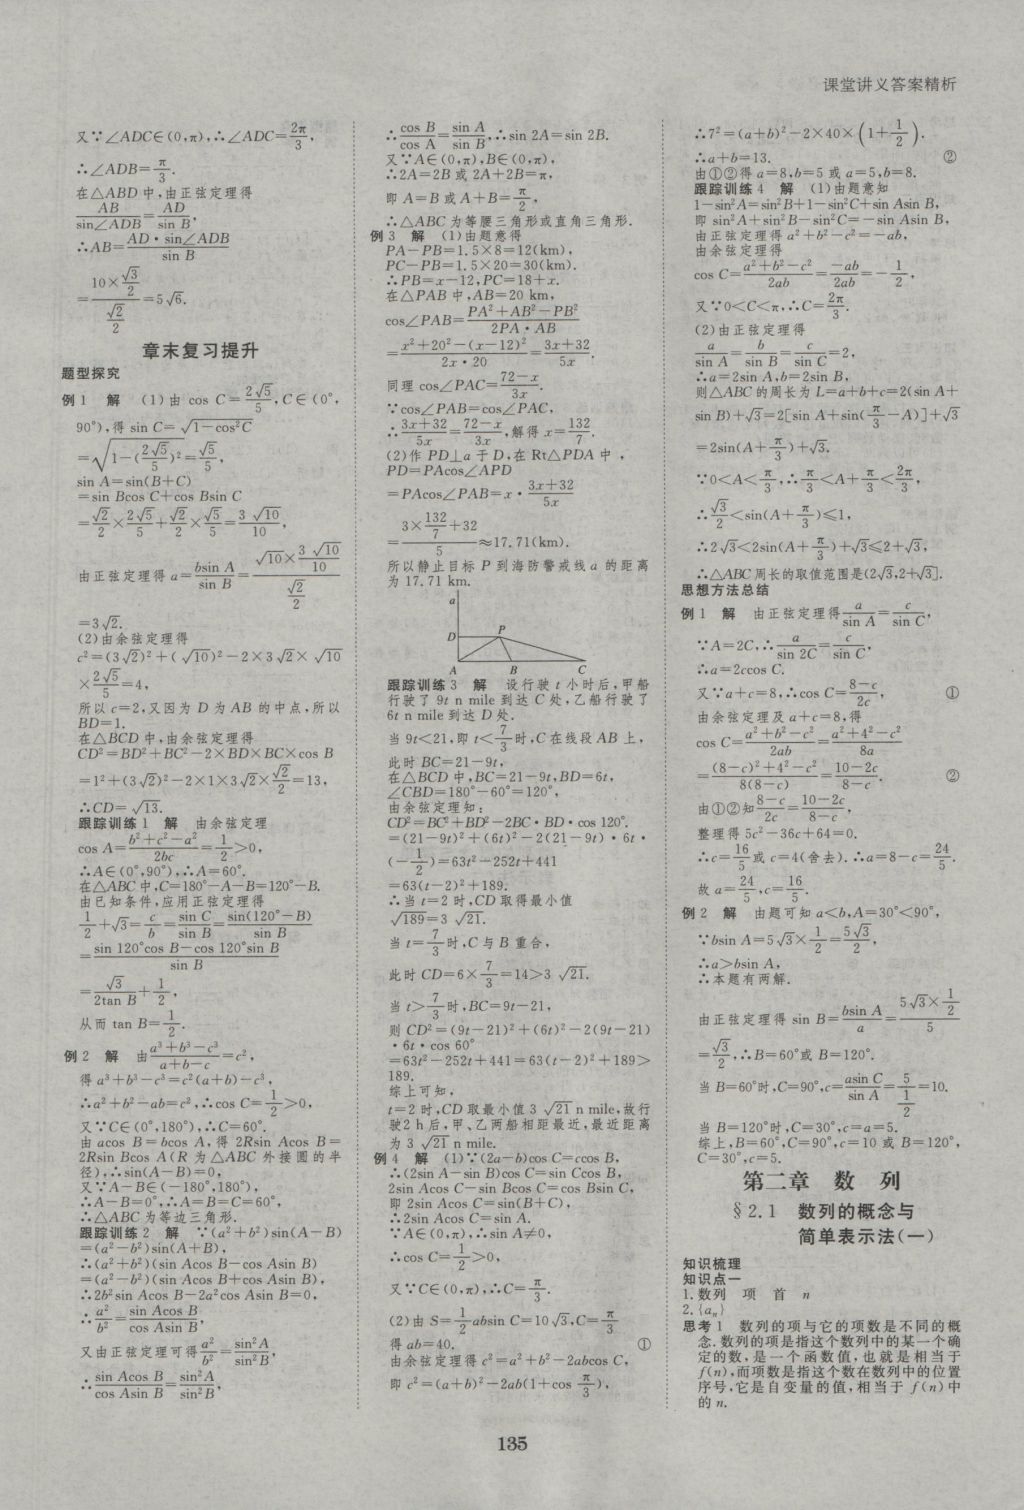 课堂讲义答案精析
又∵∠ADC∈(0,π),∴∠ADC=2π/3,
∴∠ADB=π/3.
在△ABD中,由正弦定理得
AB/sin∠ADB=AD/sin B,
∴AB=AD·sin∠ADB/sin B
=(10×√3/2)/(√2/2)=5√6.
章末复习提升
题型探究
例1 解 (1)由 cos C=2√5/5,C∈(0°,
90°),得 sin C=√(1-cos²C)
=√(1-(2√5/5)²)=√5/5,
sin A=sin(B+C)
=sin Bcos C+cos Bsin C
=√2/2×2√5/5+√2/2×√5/5=3√10/10,
由正弦定理得 a=bsin A/sin B=(√10×3√10/10)/(√2/2)
=3√2.
(2)由余弦定理得
c²=(3√2)²+(√10)²-2×3√2×√10
×2√5/5=4,
所以 c=2,又因为 D 为 AB 的中点,所以
BD=1.
在△BCD中,由余弦定理得
CD²=BD²+BC²-2×BD×BC×cos B
=1²+(3√2)²-2×1×3√2×√2/2=13,
∴CD=√13.
跟踪训练1 解 由余弦定理
cos A=(b²+c²-a²)/2bc=1/2>0,
∴A∈(0°,90°),∴A=60°.
在△ABC中,C=180°-A-B=120°-B.
由已知条件,应用正弦定理得
1/2+√3=c/b=sin C/sin B=sin(120°-B)/sin B
=(sin 120°cos B-cos 120°sin B)/sin B
=√3/(2tan B)+1/2,
从而 tan B=1/2.
例2 解 由(a³+b³-c³)/(a+b-c)=c²,
得 a³+b³-c³=c²(a+b)-c³,
∴a²+b²-ab=c²,∴cos C=1/2>0,
又∵C∈(0°,180°),∴C=60°.
由 acos B=bcos A,得 2Rsin Acos B=
2Rsin Bcos A(R 为△ABC 外接圆的半
径),∴sin(A-B)=0,
又∵A-B∈(-180°,180°),
∴A-B=0°,∴A=B=C=60°,
∴△ABC为等边三角形.
跟踪训练2 解 ∵(a²+b²)sin(A-B)
=(a²-b²)sin(A+B),
∴(a²+b²)(sin Acos B-cos Asin B)
=(a²-b²)(sin Acos B+cos Asin B),
∴2b²sin Acos B-2a²cos Asin B=0,
∴a²/b²=sin Acos B/cos Asin B,
又由正弦定理可得a²/b²=sin²A/sin²B,
∴sin Acos B/cos Asin B=sin²A/sin²B,
∴cos B/cos A=sin A/sin B,∴sin 2A=sin 2B.
又∵A∈(0,π),B∈(0,π),
∴2A=2B或2A+2B=π,
即 A=B或A+B=π/2,
∴△ABC为等腰三角形或直角三角形.
例3 解 (1)由题意得
PA-PB=1.5×8=12(km),
PC-PB=1.5×20=30(km).
∴PB=x-12,PC=18+x.
在△PAB中,AB=20 km,
cos∠PAB=(PA²+AB²-PB²)/(2PA·AB)
=(x²+20²-(x-12)²)/(2x·20)=(3x+32)/5x,
同理 cos∠PAC=(72-x)/3x.
∵cos∠PAB=cos∠PAC,
∴(3x+32)/5x=(72-x)/3x,解得 x=132/7.
(2)作 PD⊥a 于 D,在 Rt△PDA中,
PD=PAcos∠APD
=PAcos∠PAB=x·(3x+32)/5x
=(3×132/7+32)/5≈17.71(km).
所以静止目标 P 到海防警戒线 a 的距离
为 17.71 km.
a
D P
A B C
跟踪训练3 解 设行驶 t 小时后,甲船
行驶了 9t n mile到达 C 处,乙船行驶了
6t n mile到达 D 处.
当9t<21,即 t<7/3时,C在线段 AB 上,
此时 BC=21-9t,
在△BCD中,BC=21-9t,BD=6t,
∠CBD=180°-60°=120°,
由余弦定理知:
CD²=BC²+BD²-2BC·BD·cos 120°
=(21-9t)²+(6t)²-2(21-9t)·6t·
(-1/2)=63t²-252t+441
=63(t-2)²+189.
∴当 t=2时,CD取得最小值
√189=3√21.
当 t=7/3时,C与B重合,
此时 CD=6×7/3=14>3√21.
当 t>7/3时,BC=9t-21,
则 CD²=(9t-21)²+(6t)²-2(9t-21)
·6t·cos 60°
=63t²-252t+441=63(t-2)²+189>
189.
综上可知,
t=2时,CD取最小值 3√21 n mile,故行
驶2 h后,甲、乙两船相距最近,最近距离
为 3√21 n mile.
例4 解 (1)∵(2a-b)cos C=ccos B,
∴(2sin A-sin B)cos C=sin Ccos B,
2sin Acos C-sin Bcos C=cos Bsin C,
即 2sin Acos C=sin(B+C),
∴2sin Acos C=sin A.
∵A∈(0,π),∴sin A≠0,
∴cos C=1/2>0,
又∵C∈(0,π),∴C=π/3.
(2)由 S=1/2absin C=10√3,C=π/3
得 ab=40. ①
由余弦定理得 c²=a²+b²-2abcos C,
即 c²=(a+b)²-2ab(1+cos π/3),
∴7²=(a+b)²-2×40×(1+1/2).
∴a+b=13. ②
由①②得 a=8,b=5或 a=5,b=8.
跟踪训练4 解 (1)由题意知
1-sin²A=sin²B+1-sin²C+sin Asin B,
即 sin²A+sin²B-sin²C=-sin Asin B,
由正弦定理得 a²+b²-c²=-ab,
由余弦定理得
cos C=(a²+b²-c²)/2ab=-ab/2ab=-1/2,
又∵0<C<π,∴C=2π/3.
(2)由正弦定理得
a/sin A=b/sin B=c/sin C=2,
∴a=2sin A,b=2sin B,
则△ABC的周长为 L=a+b+c=2(sin A+
sin B)+√3=2[sin A+sin(π/3-A)]+√3
=2sin(A+π/3)+√3.
∵0<A<π/3,∴π/3<A+π/3<2π/3,
∴√3/2<sin(A+π/3)≤1,
∴2√3<2sin(A+π/3)+√3≤2+√3,
∴△ABC周长的取值范围是(2√3,2+√3].
思想方法总结
例1 解 由正弦定理得a/sin A=c/sin C,
∵A=2C,∴a/sin 2C=c/sin C.
∴a=2ccos C.
又∵a+c=8,∴cos C=(8-c)/2c ①
由余弦定理及 a+c=8,得
cos C=(a²+b²-c²)/2ab=(a²+4²-c²)/8a
=((8-c)²+4²-c²)/8(8-c)=(10-2c)/(8-c). ②
由①②知(8-c)/2c=(10-2c)/(8-c),
整理得 5c²-36c+64=0.
∴c=16/5或 c=4(舍去).∴a=8-c=24/5.
故 a=24/5,c=16/5.
例2 解 由题可知 a<b,A=30°<90°,
∵bsin A=5√3×1/2=5√3/2,
∴a>bsin A,
∴本题有两解.
由正弦定理得 sin B=bsin A/a=(5√3×1/2)/5
=√3/2,∴B=60°或 B=120°.
当 B=60°时,C=90°,c=asin C/sin A=5/(1/2)=10.
当 B=120°时,C=30°,c=a=5.
综上,B=60°,C=90°,c=10或 B=120°,
C=30°,c=5.
第二章 数 列
§2.1 数列的概念与
简单表示法(一)
知识梳理
知识点一
1.数列 项 首 n
2.{aₙ}
思考1 数列的项与它的项数是不同的概
念.数列的项是指这个数列中的某一个确
定的数,是一个函数值,也就是相当于
f(n),而项数是指这个数在数列中的位置
序号,它是自变量的值,相当于 f(n)中
的 n.
135